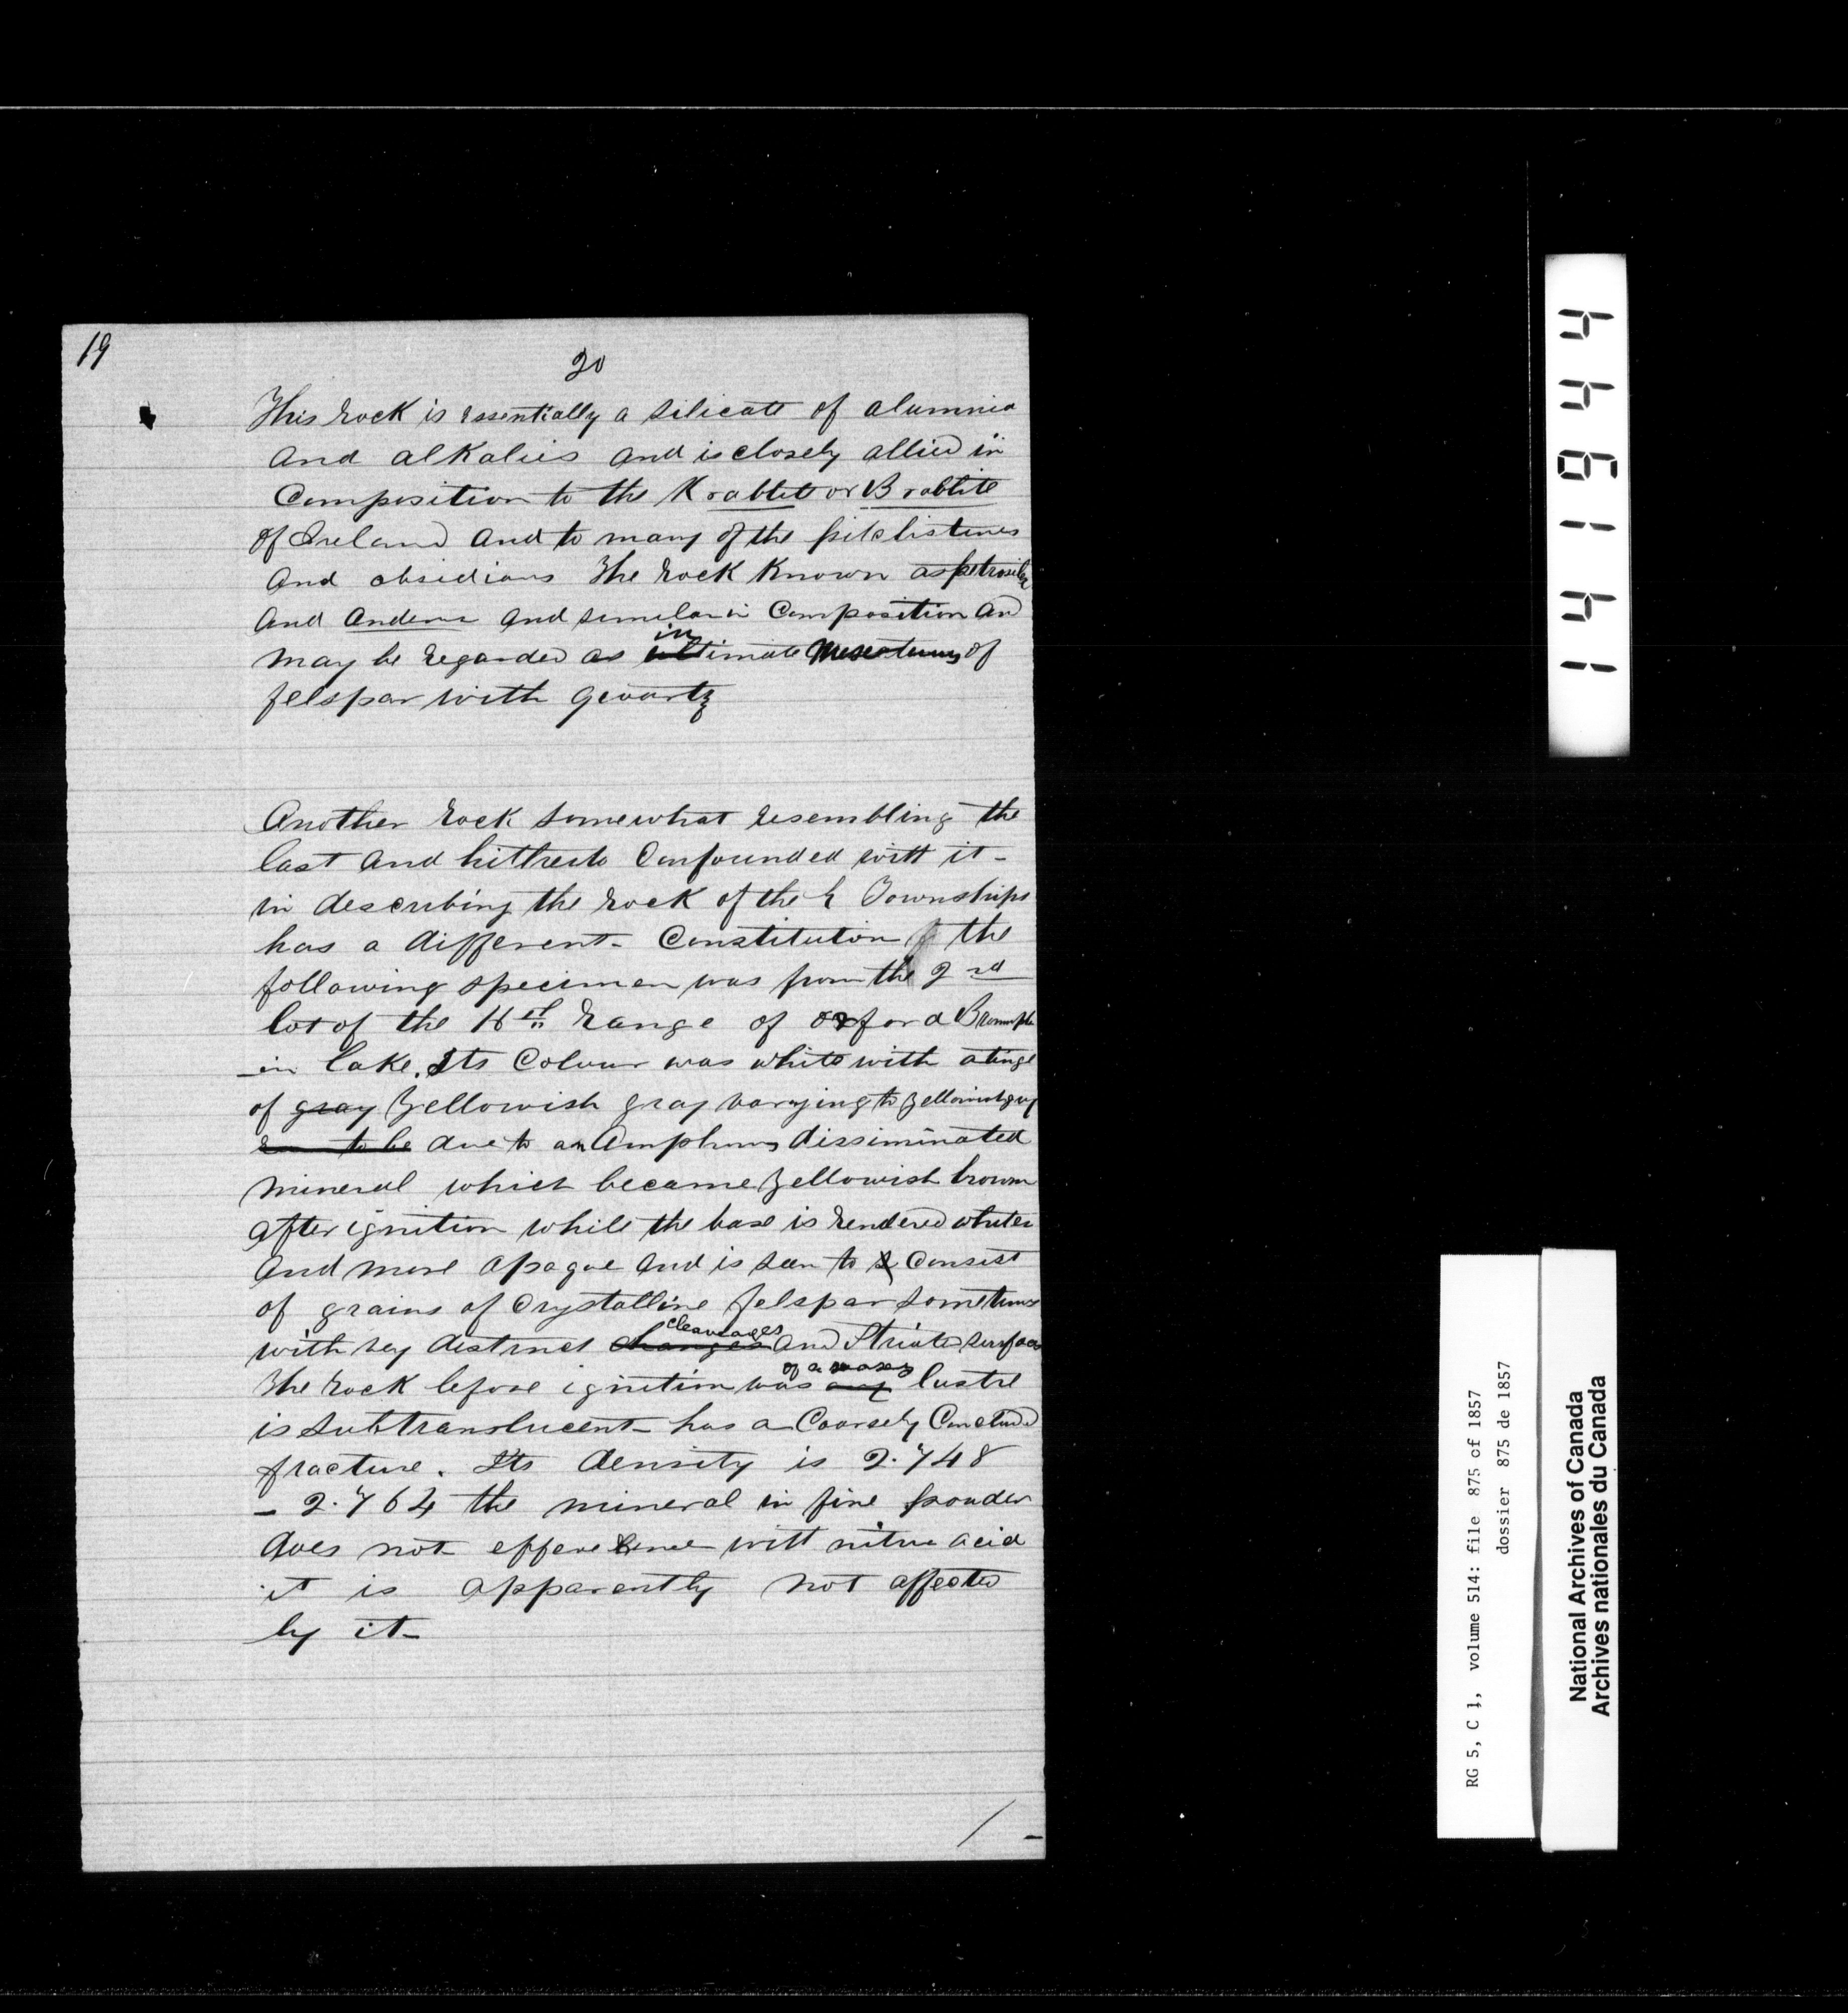 19
20
This rock is essentially a silicate of alumnia
and alkalies and is closely allied in
Composition to the Krablite or Brablite
of Ireland and to many of the
and obsidians The rock known as petrosilex
and and similar in Composition and
may be regarded as in ultimate of
felspar with quartz
Another rock somewhat resembling the
last and hitherto Confounded with it
in describing the rock of the E Townships
has a different Constitution the
following specimen was from the 2nd
lot of the range of orford Brompton
in lake. Its Colour was white with a tinge
of gray yellowish gray varying to yellowish gray
to be due to an dissiminated
mineral which became yellowish brown
after ignition while the base is rendered whiter
and more opaque and is seen to Consist
of grains of Crystalline felspar sometimes
cleavages
with very distinct changes and Striated surfaces
of a waxy
The rock before ignition was lustre
is subtranslucent has a Coarsely
fracture. Its density is 2.748
- 2.764 the mineral in fine powder
does not with nitric acid
it is apparently not affected
by it
/ -
441944
RG 5, C 1, volume 514: file 875 of 1857
dossier 875 de 1857
National Archives of Canada
Archives nationales du Canada